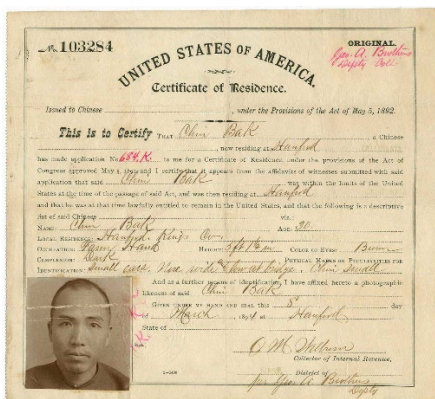 No. 103284
ORIGINAL.
Geo. A. Brothers
Depty Coll.
UNITED STATES OF AMERICA.
Certificate of Residence.
Issued to Chinese , under the Provisions of the Act of May 5, 1892.
This is to Certify THAT Chin Bak a Chinese
now residing at Hanford
has made application No. 684 K to me for a Certificate of Residence, under the provisions of the Act of
Congress approved May 5, 1892, and I certify that it appears from the affidavits of witnesses submitted with said
application that said Chin Bak was within the limits of the United
States at the time of the passage of said Act, and was then residing at Hanford
and that he was at that time lawfully entitled to remain in the United States, and that the following is a descriptive
list of said Chinese viz.:
NAME: Chin Bak AGE: 30
LOCAL RESIDENCE: Hanford, Kings Co.
OCCUPATION: Farm Hand HEIGHT: 5 ft in COLOR OF EYES: Brown
COMPLEXION: Dark PHYSICAL MARKS OR PECULIARITIES FOR
IDENTIFICATION: Small ears. Nose wide & low at bridge. Chin small
And as a further means of identification, I have affixed hereto a photographic
likeness of said Chin Bak
GIVEN UNDER MY HAND AND SEAL this 5 day
of March , 1894, at Hanford
State of
O M Welburn
Collector of Internal Revenue,
District of
per Geo A Brothers
Depty